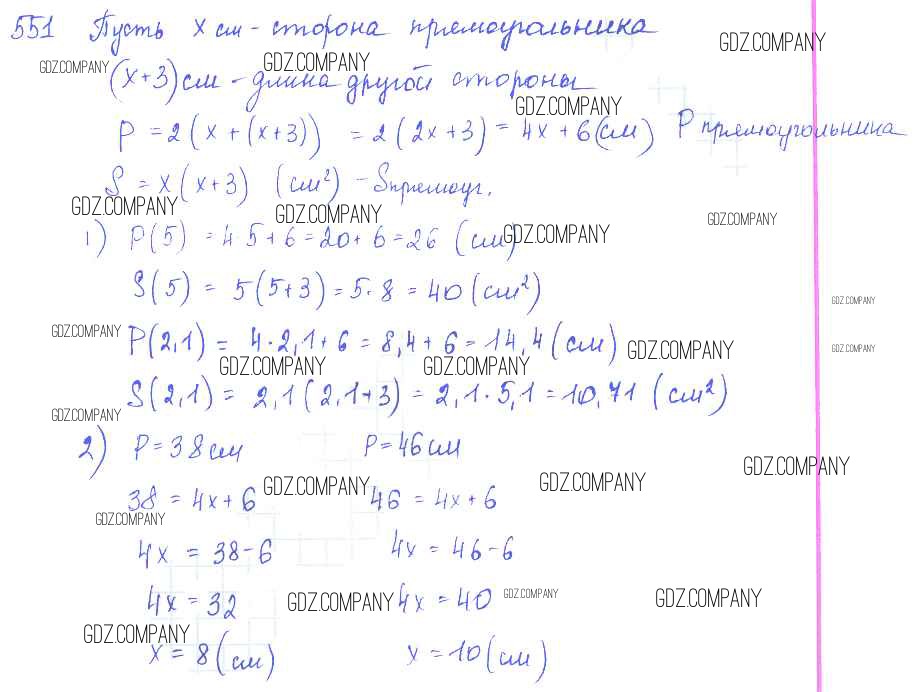 551 Пусть x см - сторона прямоугольника
GDZ.COMPANY
GDZ.COMPANY
GDZ.COMPANY
(x+3) см - длина другой стороны
GDZ.COMPANY
P = 2(x + (x+3)) = 2(2x+3) = 4x + 6 (см) P прямоугольника
S = x(x+3) (см²) - Sпрямоуг.
GDZ.COMPANY
GDZ.COMPANY
GDZ.COMPANY
1) P(5) = 4 5+6 = 20+6 = 26 (см)
GDZ.COMPANY
S(5) = 5(5+3) = 5·8 = 40 (см²)
GDZ.COMPANY
GDZ.COMPANY
P(2,1) = 4·2,1+6 = 8,4+6 = 14,4 (см)
GDZ.COMPANY
GDZ.COMPANY
GDZ.COMPANY
GDZ.COMPANY
S(2,1) = 2,1(2,1+3) = 2,1·5,1 = 10,71 (см²)
GDZ.COMPANY
2) P=38см P=46см
GDZ.COMPANY
GDZ.COMPANY
GDZ.COMPANY
38 = 4x+6 46 = 4x+6
GDZ.COMPANY
4x = 38-6 4x = 46-6
4x = 32 4x = 40
GDZ.COMPANY
GDZ.COMPANY
GDZ.COMPANY
GDZ.COMPANY
x = 8 (см) x = 10 (см)